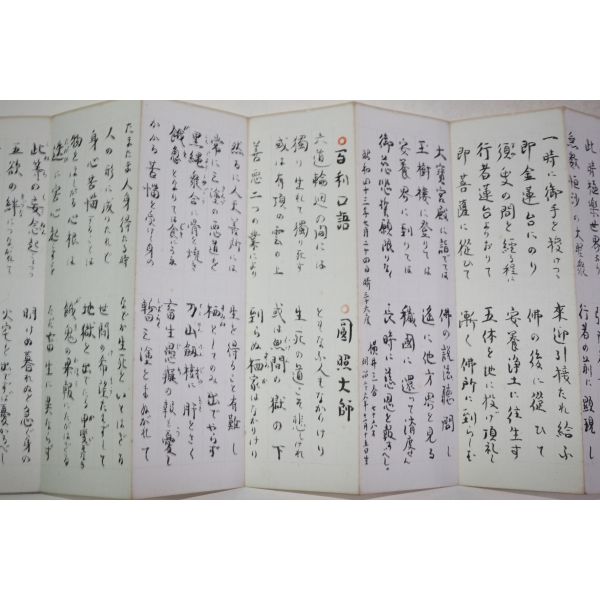 此時極楽世界より
行者の前に顕現して
一時に御手を授けつゝ 来迎引接たれ給ふ
即金蓮台にのり 佛の後に従ひて
須臾の間を経る程に 安養浄土に往生す
行者蓮台よりおりて 五体を地に投げ頂礼し
即菩薩に従ひて 漸く佛所に到らしむ
大寶宮殿に詣でては 佛の説法聴聞し
玉樹楼に登りては 遥に他方界を見る
安養界に到りては 穢國に還て済度せん
御慈悲誓願限りなく 長時に慈恩を報ずべし
昭和四十三年七月二十四日 時三十六度 横井 七十六才
○百利口語 ○圓照大師
六道輪廻の間には ともなふ人もなかりけり
獨り生れて獨り死す 生死の道こそ悲しけれ
或は有頂の雲の上 或は無間の獄の下
善悪二つの業により 到らぬ栖家はなかりけり
然るに人天善所には 生を得ること有難し
常に三途の悪道を 栖としてのみ出でやらず
黒縄衆合に骨を焼き 刀山剱樹に肝をさく
餓鬼となりては食にうゑ 畜生愚癡の報も憂し
かかる苦悩を受けし身の 暫く三途をまぬがれて
たまたま人身得たる時 などか生死をいとはざる
人の形に成りたれど 世間の希望たえずして
身心苦悩することは 地獄を出でたる
物をほしがる心根は 餓鬼の果報にたがはざる
迭に害心起すこと ただ畜生に異ならず
此等の妄念起しつつ 明けぬ暮れぬと急ぐ身の
五欲の絆につながれて 火宅を出でずは憂きぞかし